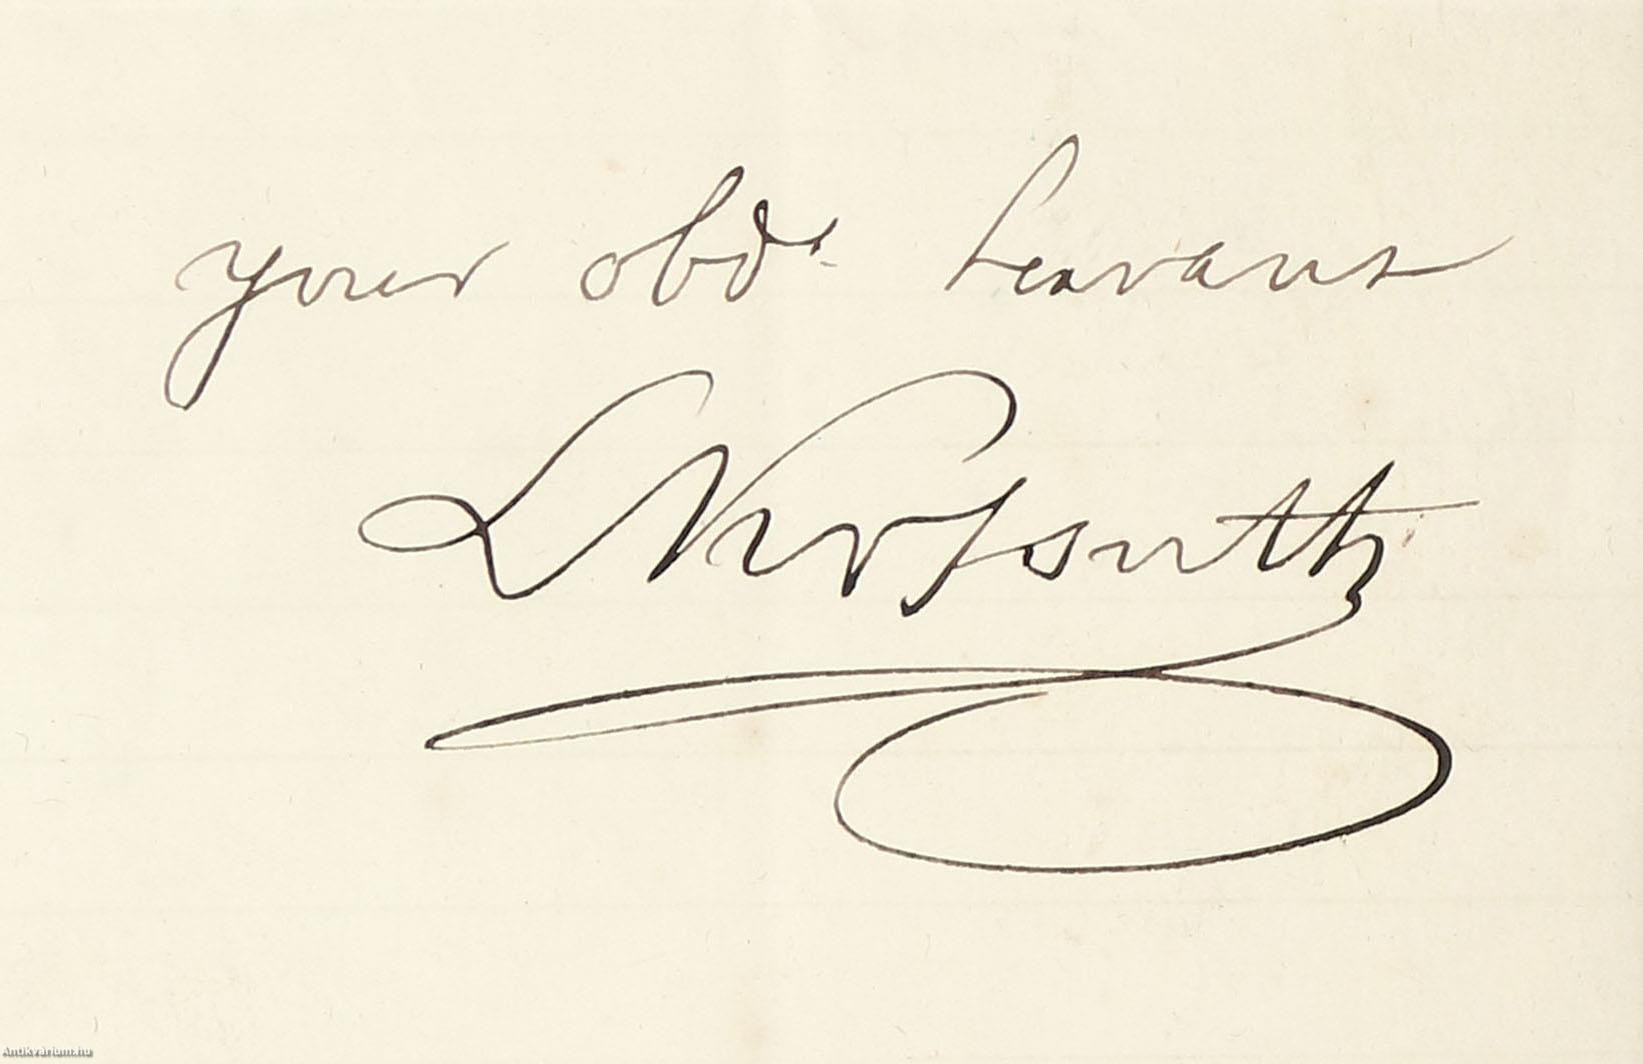 your obdt servant
L Kossuth
Antikvárium.hu